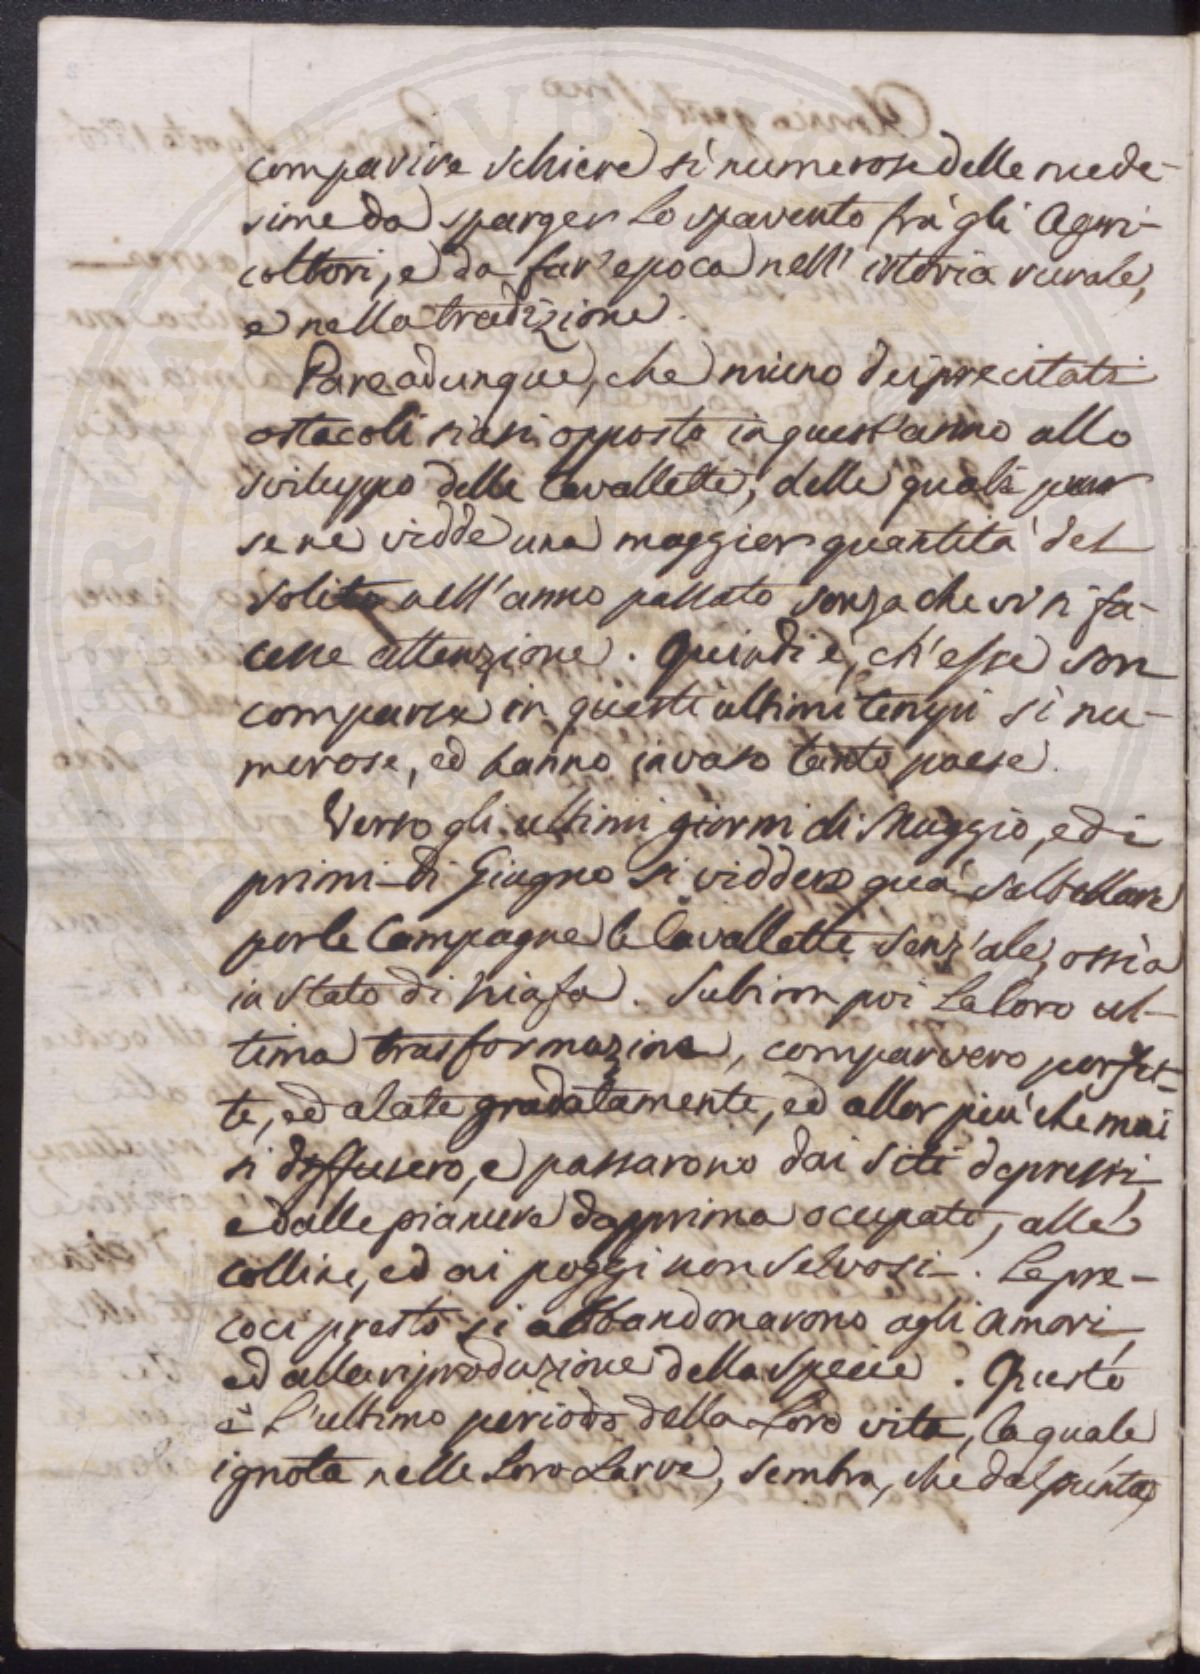 comparire schiere sì numerose delle mede-
sime da sparger lo spavento frà gli Agri-
coltori, e da far' epoca nell' istoria rurale,
e nella tradizione.
Pare adunque, che niuno dei precitati
ostacoli siasi opposto in quest'anno allo
sviluppo delle Cavallette, delle quali pur
se ne vidde una maggior quantità del
solito nell'anno passato senza che vi si fa-
cesse attenzione. Quindi è, ch'esse son
comparse in questi ultimi tempi sì nu-
merose, ed hanno invaso tanto paese.
Verso gli ultimi giorni di Maggio, ed i
primi di Giugno si viddero quà saltellare
per le Campagne le Cavallette senz'ale, ossia
in stato di Ninfa. Subìta poi la loro ul-
tima trasformazione, comparvero perfet-
te, ed alate gradatamente, ed allor più che mai
si diffusero, e passarono dai siti depressi,
e dalle pianure dapprima occupate, alle
colline, ed ai poggi non selvosi. Le pre-
coci presto si abbandonarono agli amori,
ed alla riproduzione della specie. Questo
è l'ultimo periodo della loro vita, la quale
ignota nelle loro Larve, sembra, che dal punto